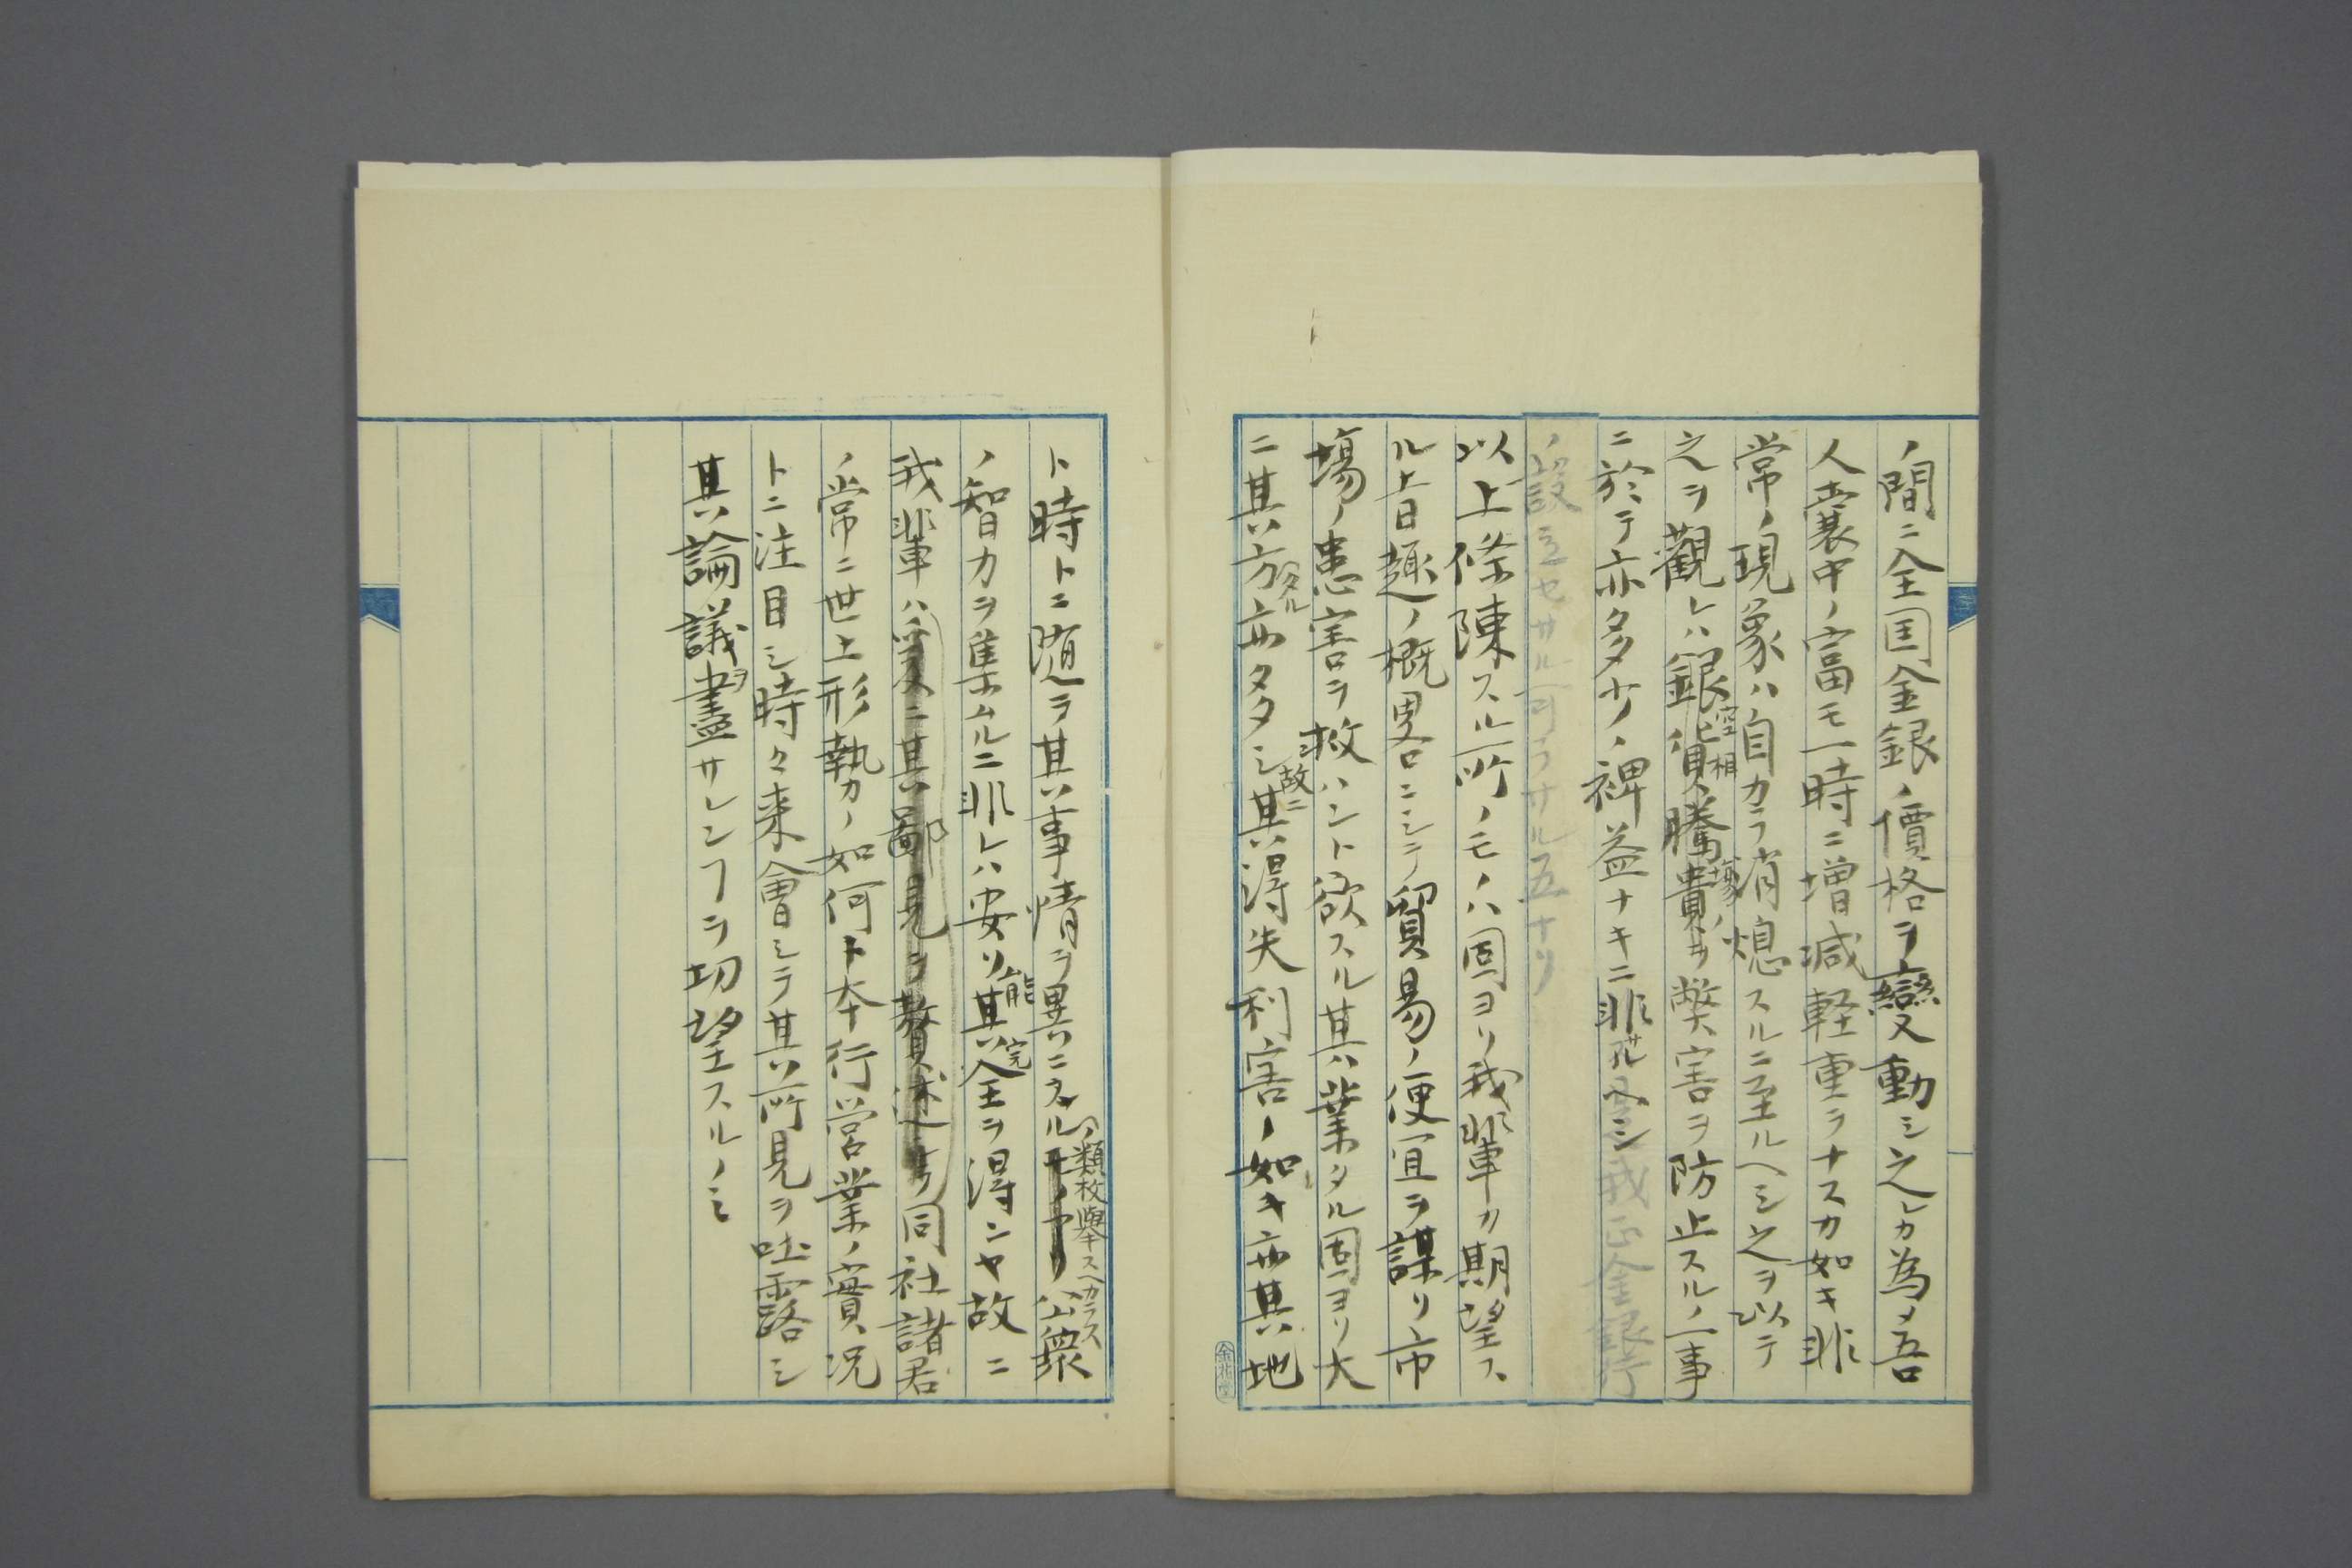 ノ間ニ全国金銀ノ價格ヲ變動シ之レカ為メ吾
人嚢中ノ富モ一時ニ増減軽重ヲナスカ如キ非
常ノ現象ハ自カラ消熄スルニ至ルヘシ之ヲ以テ
之ヲ觀レハ銀貨騰貴ノ弊害ヲ防止スルノ一事
空相
場
ニ於テ亦多少ノ裨益ナキニ非サルヘシ我正金銀行
ノ設立セサル可ラサル五ナリ
以上條陳スル所ノモノハ固ヨリ我輩カ期望ス
ル旨趣ノ概畧ニシテ貿易ノ便宜ヲ謀リ市
場ノ患害ヲ救ハント欲スル其業タル固ヨリ大
ニ其方亦タ多シ其得失利害ノ如キ亦其地
タル
故ニ
金花堂
ト時トニ随ヲ其事情ヲ異ニスル 公衆
ノ類枚擧スヘカラス
ノ智力ヲ集ムルニ非レハ安ソ其全ヲ得ンヤ故ニ
能
完
我輩ハ爰ニ其鄙見ヲ贅述シ同社諸君
ノ常ニ世上形勢ノ如何ト本行営業ノ實況
トニ注目シ時々来會シテ其所見ヲ吐露シ
其論議ヲ盡サレンヿヲ切望スルノミ